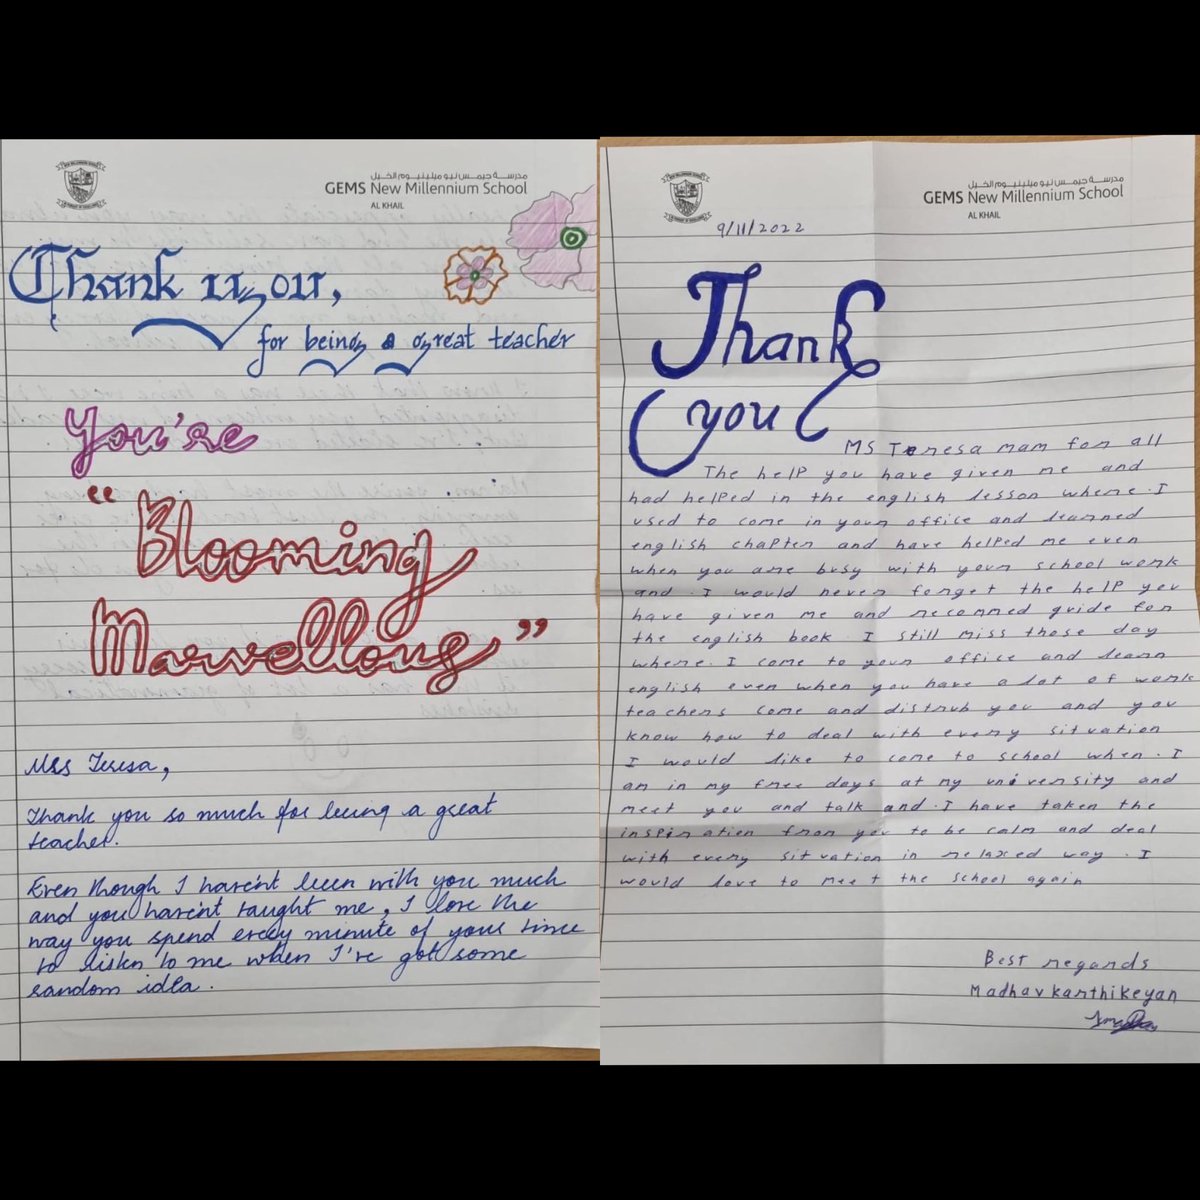 GEMS New Millennium School
AL KHAIL
Thank you,
for being a great teacher
You're
"Blooming
Marvellous"
Mrs Teresa,
Thank you so much for being a great
teacher.
Even though I haven't been with you much
and you haven't taught me, I love the
way you spend every minute of your time
to listen to me when I've got some
random idea.
مدرسة جيمس نيو ميلينيوم الخيل
GEMS New Millennium School
AL KHAIL
9/11/2022
Thank
you
MS Teresa mam for all
The help you have given me and
had helped in the english lesson where I
used to come in your office and learned
english chapter and have helped me even
when you are busy with your school work
and I would never forget the help you
have given me and recommed guide for
the english book I still miss those day
where I come to your office and learn
english even when you have a lot of work
teachers come and distrub you and you
know how to deal with every situation
I would like to come to school when I
am in my free days at my university and
meet you and talk and I have taken the
inspiration from you to be calm and deal
with every situation in relaxed way. I
would love to meet the school again
Best regards
Madhavkarthikeyan